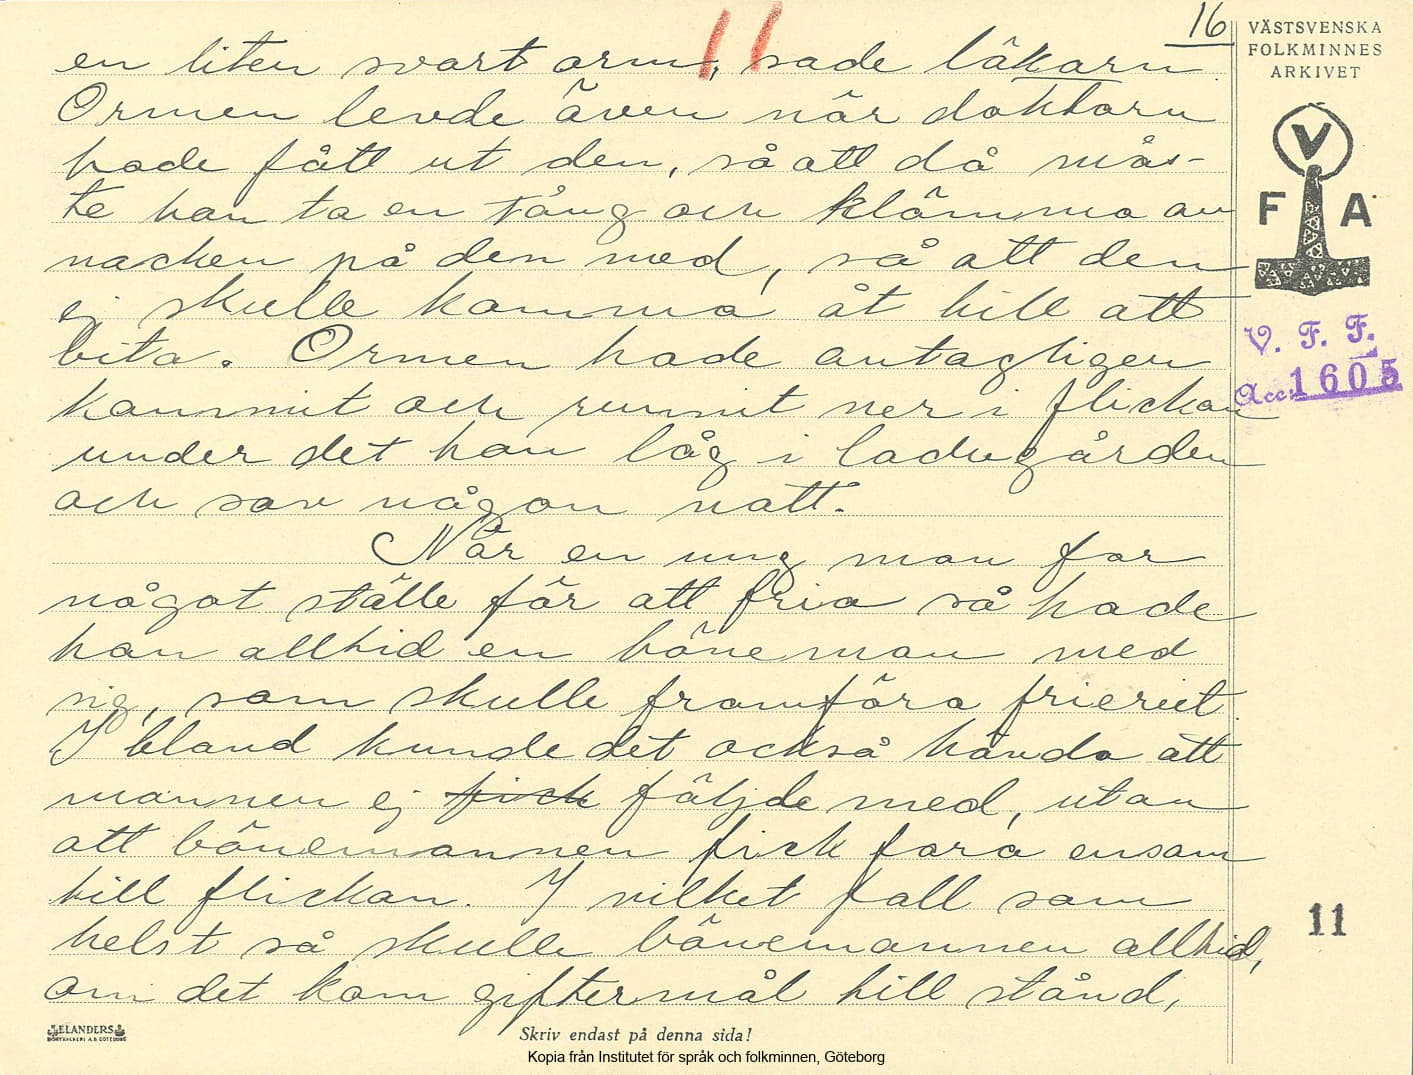 16
VÄSTSVENSKA
FOLKMINNES
ARKIVET
V
F A
V. F. F.
Acc: 1605
11
en liten svart orm, sade läkarn.
Ormen levde även när doktorn
hade fått ut den, så att då mås-
te han ta en tång och klämma av
nacken på den med, så att den
ej skulle komma åt till att
bita. Ormen hade antagligen
kommit och runnit ner i flickan
under det hon låg i ladugården
och sov någon natt.
När en ung man for
något ställe för att fria så hade
han alltid en böneman med
sig, som skulle framföra frieriet.
I bland kunde det också hända att
mannen ej fick följde med, utan
att bönemannen fick fara ensam
till flickan. I vilket fall som
helst så skulle bönemannen alltid,
om det kom giftermål till stånd,
11
ELANDERS
BOKTRYCKERI A.B. GÖTEBORG
Skriv endast på denna sida!
Kopia från Institutet för språk och folkminnen, Göteborg